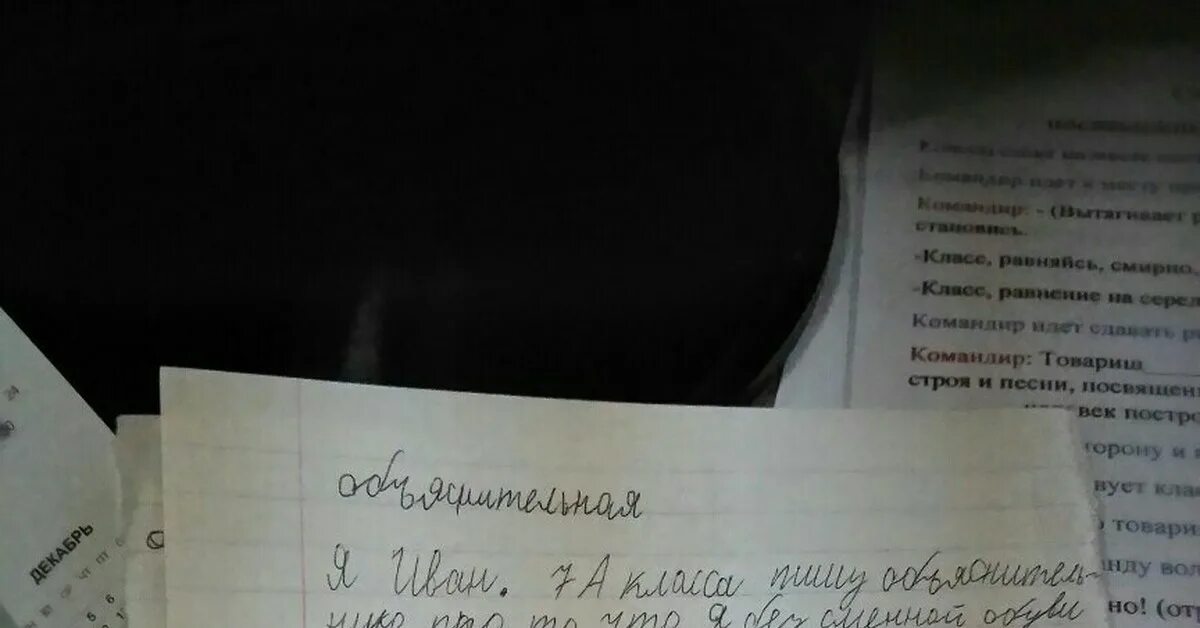 Командир идет к месту
Командир: - (Вытягивает
становись.
-Класс, равняйсь, смирно.
-Класс, равнение на серед
Командир идет сдавать
Командир: Товарищ____
строя и песни, посвящен
век постро
торону и
вует кла
товари
анду вол
но! (от
24
ДЕКАБРЬ
ЧТ ПТ
5 6
объяснительная
Я Иван. 7 А класса пишу объяснитель-
ную про то что Я без сменной обуви